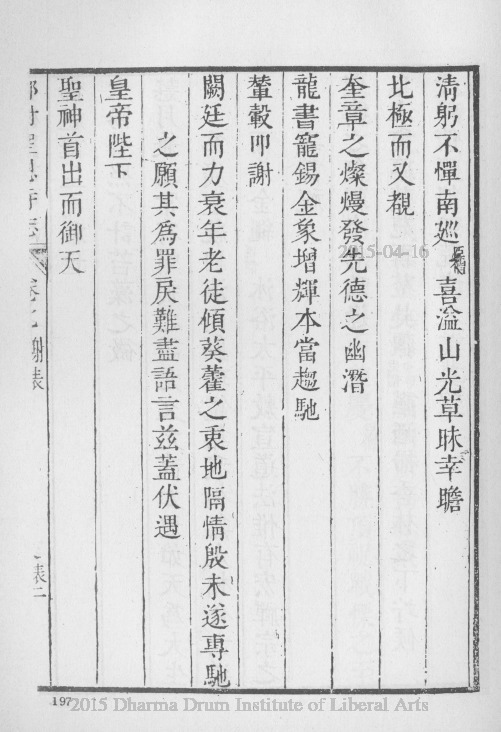 清躬不憚南廵喜溢山光草昧幸瞻
北極而又覩
奎章之燦熳發先德之幽潛
龍書寵錫金象增輝本當趨馳
輦轂叩謝
闕廷而力衰年老徒傾葵藿之衷地隔情殷未遂専馳
之願其為罪戾難盡語言兹蓋伏遇
皇帝陛下
聖神首出而御天
謝表
表二
197
2015-04-16
2015 Dharma Drum Institute of Liberal Arts